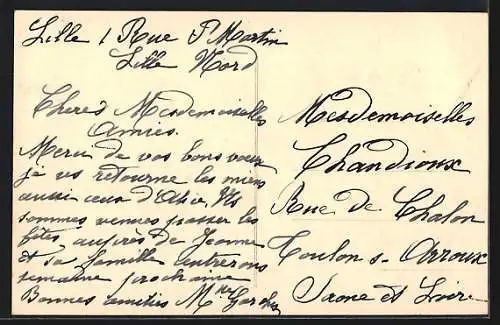 Lille 1 Rue St Martin
Lille Nord
Cheres Mesdemoiselles
Amies.
Merci de vos bons voeux
je vs retourne les miens
aussi ceux d'Alice, Ns
sommes venues passer les
fêtes, auprès de Jeanne
et sa famille entrerons
semaine prochaine
Bonnes amitiés Mlle
Mesdemoiselles
Chandioux
Rue de Chalon
Toulon s- Arroux
Saone et Loire